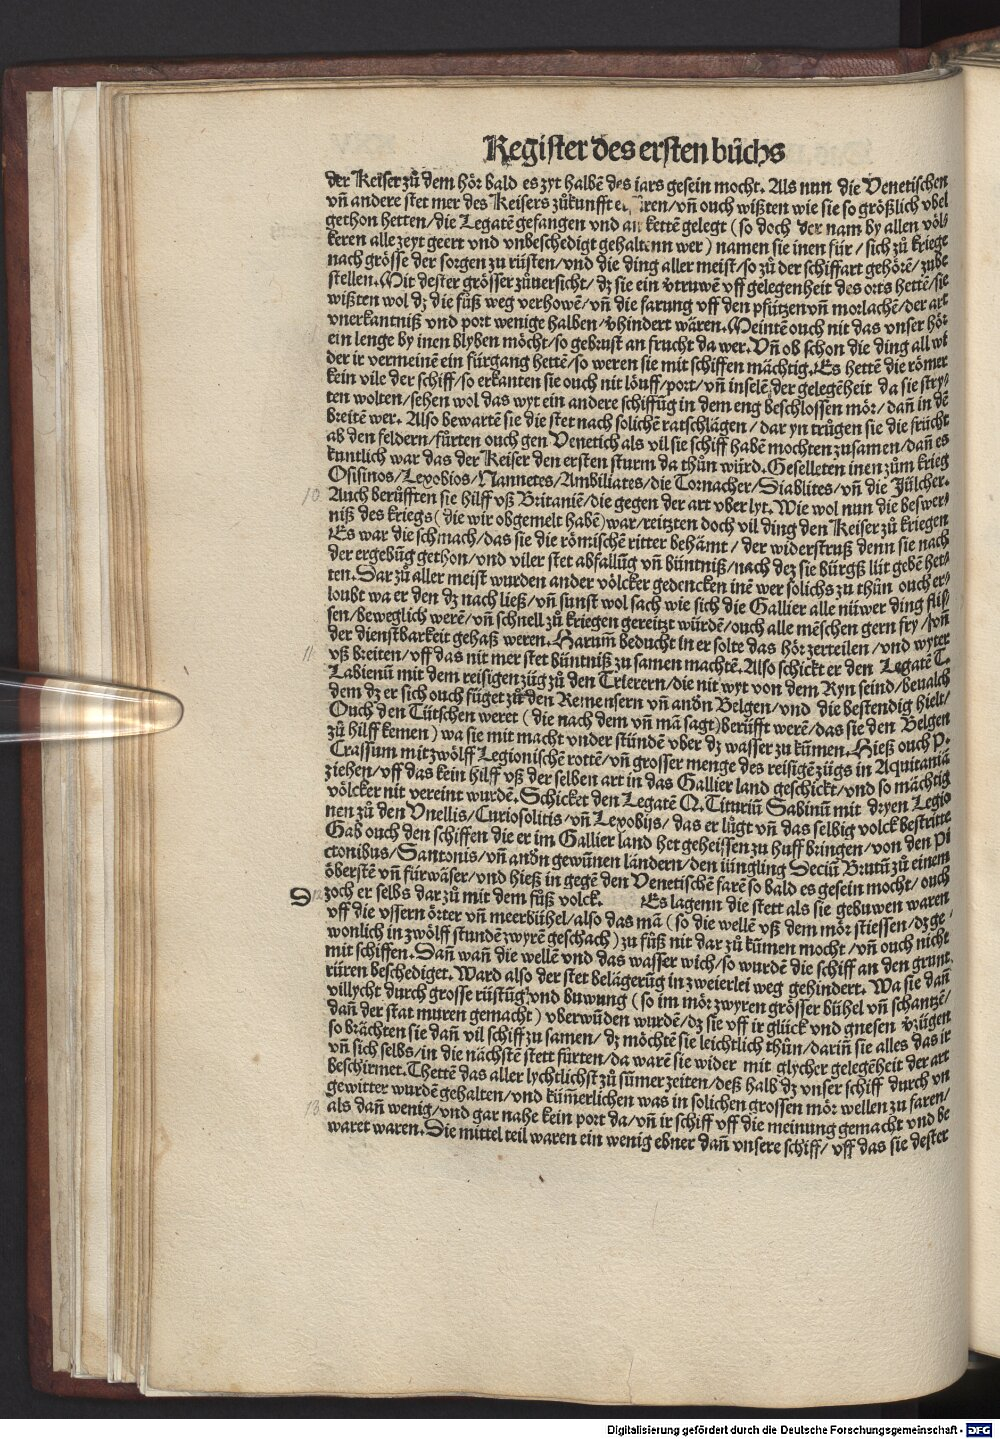 Register des ersten bůchs
der Keiser zů dem hör bald es zyt halbē des iars gesein mocht. Als nun die Venetischen
vñ andere stet mer des Keisers zůkunfft ren/vñ ouch wißten wie sie so größlich vbel
gethon hetten/die Legatē gefangen vnd an kettē gelegt (so doch der nam by allen völ⸗
keren alle zeyt geert vnd vnbeschedigt gehaltenn wer) namen sie inen für/sich zů kriege
nach grösse der sorgen zu rüsten/vnd die ding aller meist/so zů der schiffart gehörē/zube
stellen. Mit dester grösser zůuersicht/dz sie ein vtruwē vff gelegenheit des orts hettē/sie
wißten wol dz die fůß weg verhowē/vñ die farung vff den pfützen vñ morlachē/der art
vnerkantniß vnd port wenige halben/vhindert wären. Meintē ouch nit das vnser hör
ein lenge by inen blyben möcht/so gebrust an frucht da wer. Vñ ob schon die ding all wi
der ir vermeinē ein fürgang hettē/so weren sie mit schiffen mächtig. Es hettē die römer
kein vile der schiff/so erkanten sie ouch nit löuff/port/vñ inselē der gelegēheit da sie stry⸗
ten wolten/sehen wol das wyt ein andere schiffūg in dem eng beschlossen mör/dañ in dē
breitē wer. Also bewartē sie die stet nach solichē ratschlägen/dar yn trůgen sie die frücht
ab den feldern/fürten ouch gen Venetich als vil sie schiff habē mochten zusamen/dañ es
kuntlich war das der Keiser den ersten sturm da thůn würd. Geselleten inen zům krieg
Osisinos/Lexobios/Nannetes/Ambiliates/die Tornacher/Diablites/vñ die Jülcher.
10 Auch berůfften sie hilff vß Britaniē/die gegen der art vber lyt. Wie wol nun die beswer⸗
niß des kriegs (die wir obgemelt habē) war/reitzten doch vil ding den Keiser zů kriegen
Es war die schmach/das sie die römischen ritter behāmt/der widerstruß denn sie nach
der ergebūg gethon/vnd viler stet abfallūg vñ büntniß/nach dez sie bürgß lüt gebē het⸗
ten. Dar zů aller meist wurden ander völcker gedencken inē wer solichs zu thůn ouch er⸗
loubt wa er den dz nach ließ/vñ sunst wol sach wie sich die Gallier alle nüwer ding fliß⸗
sen/beweglich werē/vñ schnell zů kriegen gereitzt würdē/ouch alle mēschen gern fry/von
der dienstbarkeit gehaß weren. Harumb beducht in er solte das hör zerteilen/vnd wyter
11 vß breiten/vff das nit mer stet büntniß zu samen machtē. Also schickt er den Legatē T.
Labienū mit dem reisigen züg zů den Trierern/die nit wyt von dem Ryn seind/beualch
dem dz er sich ouch füget zů den Remensern vñ andn Belgen/vnd die bestendig hielt/
Ouch den Tütschen weret (die nach dem vñ mā sagt) berüfft werē/das sie den Belgen
zů hilff kemen) wa sie mit macht vnder stündē vber dz wasser zu kūmen. Hieß ouch P.
Crassum mit zwölff Legionischē rottē/vñ grosser menge des reisigē zügs in Aquitaniā
ziehen/vff das kein hilff vß der selben art in das Gallier land geschickt/vnd so mächtig
völcker nit vereint wurdē. Schicket den Legatē Q. Tituriū Sabinū mit dryen Legio
nen zů den Vnellis/Curiosolitis/vñ Lexobijs/das er lůgt vñ das selbig volck bestritte
Gab ouch den schiffen die er im Gallier land het geheissen zu huff bringen/von den Pi
ctonibus/Santonis/vñ andn gewūnen ländern/den iüngling Deciū Brutū zů einem
öberstē vñ fürwäser/vnd hieß in gegē den Venetischē farē so bald es gesein mocht/ouch
D 12 zoch er selbs dar zů mit dem fůß volck. Es lagenn die stett als sie gebuwen waren
vff die vssern örter vñ meerbühel/also das mā (so die wellē vß dem mör stiessen/dz ge⸗
wonlich in zwölff stundē zwyrē geschach) zu fůß nit dar zů kūmen mocht/vñ ouch nicht
mit schiffen. Dañ wañ die wellē vnd das wasser wich/so wurdē die schiff an den grunt
rüren beschediget. Ward also der stet belägerūg in zweierlei weg gehindert. Wa sie dañ
villycht durch grosse rüstūg/vnd buwung (so im mör zwyren grösser bühel vñ schantzē/
dañ der stat muren gemacht) vberwūden wurdē/dz sie vff ir glück vnd gnesen vzügen
so brächten sie dañ vil schiff zu samen/dz möchtē sie leichtlich thůn/dariñ sie alles das ir
vñ sich selbs/in die nächstē stett fürten/da warē sie wider mit glycher gelegēheit der art
beschirmet. Thettē das aller lychtlichst zů sūmer zeiten/deß halb dz vnser schiff durch vn
gewitter wurdē gehalten/vnd kūmerlichen was in solichen grossen mör wellen zu faren/
13 als dañ wenig/vnd gar nahe kein port da/vñ ir schiff vff die meinung gemacht vnd be
waret waren. Die mittel teil waren ein wenig ebner dañ vnsere schiff/vff das sie dester
Digitalisierung gefördert durch die Deutsche Forschungsgemeinschaft - DFG